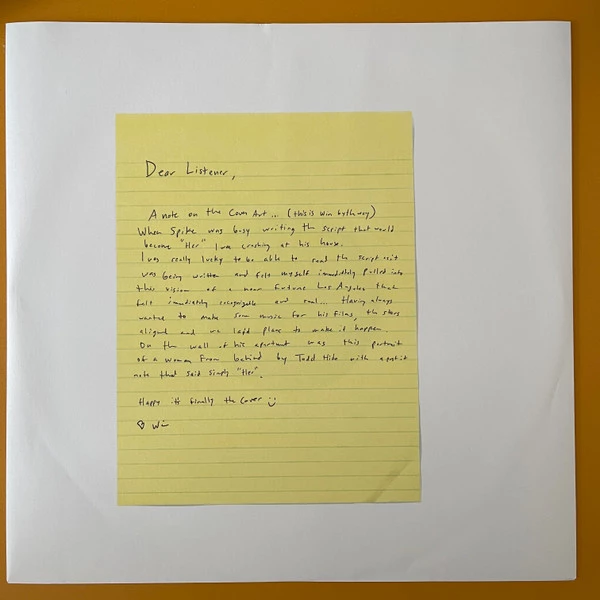 Dear Listener,
A note on the Cover Art... (this is win by the way)
When Spike was busy writing the script that would
become "Her" I was crashing at his house.
I was really lucky to be able to read the script as it
was being written and felt myself immediately pulled into
this vision of a near future Los Angeles that
felt immediately recognizable and real... Having always
wanted to make some music for his films, the stars
aligned and we laid plans to make it happen.
On the wall of his apartment was this portrait
of a woman from behind by Todd Hido with a post it
note that said simply "Her".
Happy its finally the cover :)
Win